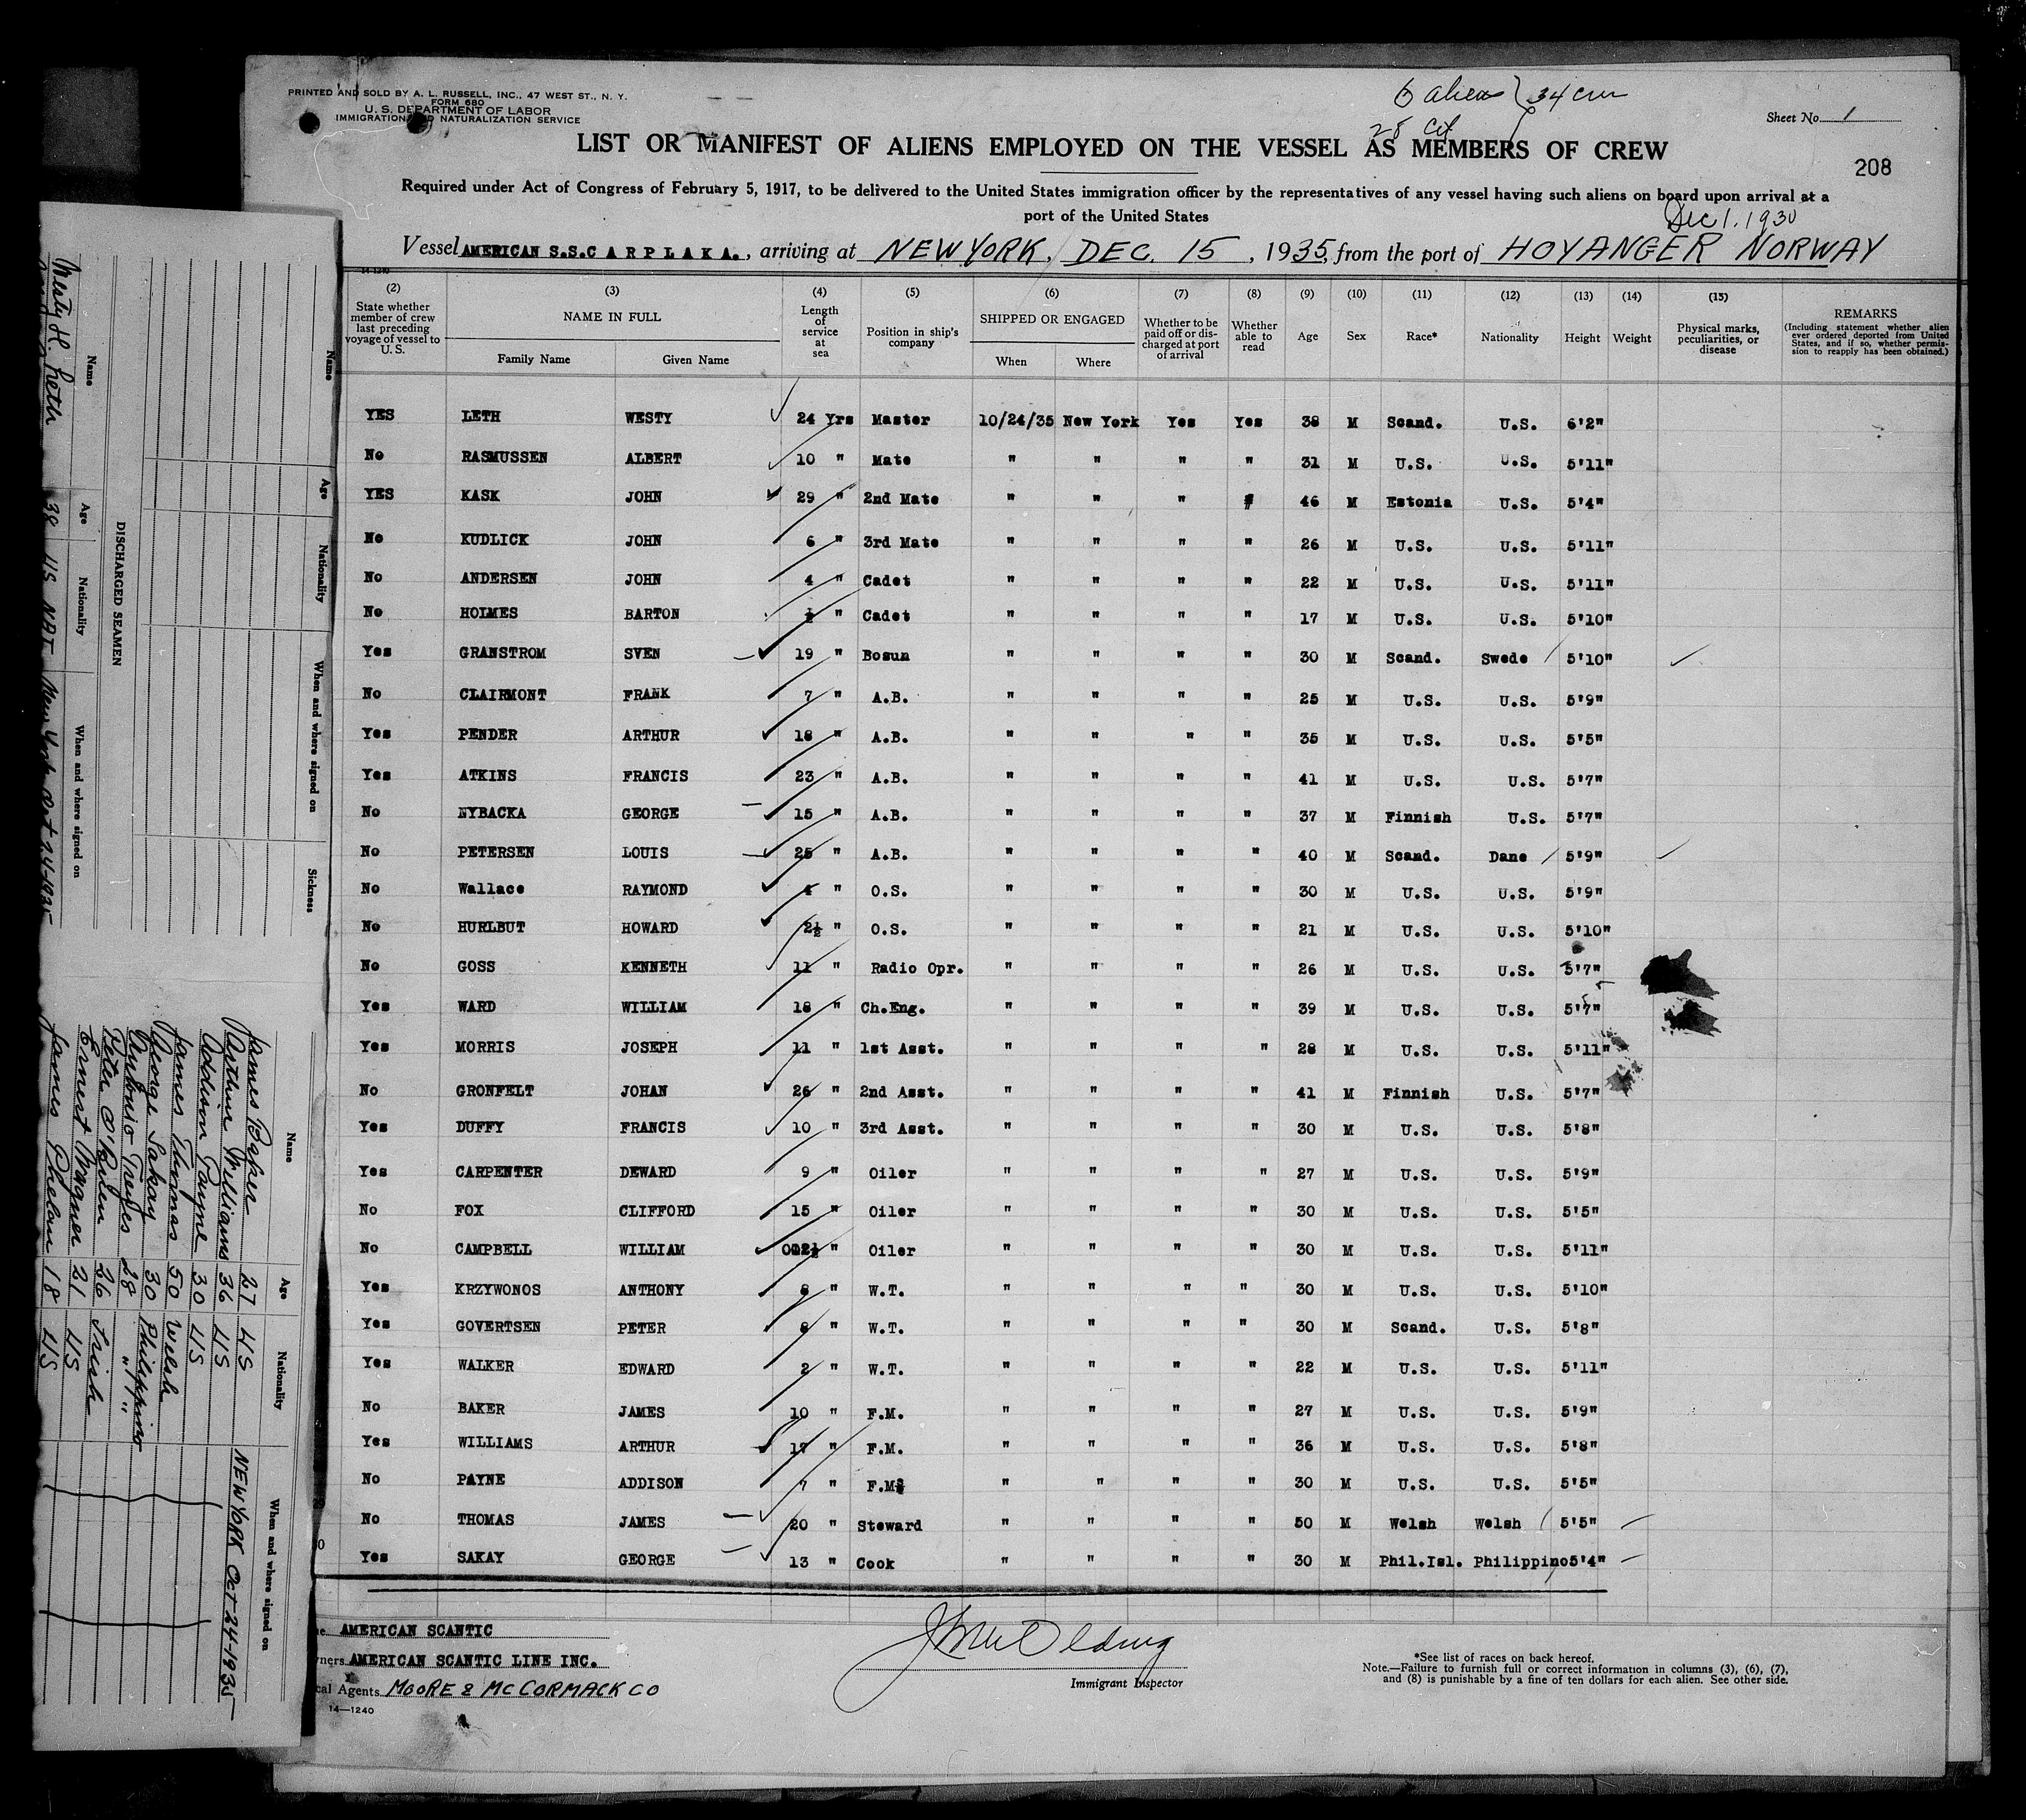 PRINTED AND SOLD BY A. L. RUSSELL, INC., 47 WEST ST., N. Y.
FORM 680
U. S. DEPARTMENT OF LABOR
IMMIGRATION AND NATURALIZATION SERVICE
6 aliens } 34 crew
28 cit
Sheet No. 1
LIST OR MANIFEST OF ALIENS EMPLOYED ON THE VESSEL AS MEMBERS OF CREW
208
Required under Act of Congress of February 5, 1917, to be delivered to the United States immigration officer by the representatives of any vessel having such aliens on board upon arrival at a
port of the United States
Dec 1. 1930
Vessel AMERICAN S.S.CARPLAKA., arriving at NEW YORK, DEC. 15, 1935, from the port of HOYANGER NORWAY
14-1240
(2) State whether member of crew last preceding voyage of vessel to U.S.
(3) NAME IN FULL Family Name Given Name
(4) Length of service at sea
(5) Position in ship's company
(6) SHIPPED OR ENGAGED When Where
(7) Whether to be paid off or discharged at port of arrival
(8) Whether able to read
(9) Age
(10) Sex
(11) Race*
(12) Nationality
(13) Height
(14) Weight
(15) Physical marks, peculiarities, or disease
REMARKS (Including statement whether alien ever ordered deported from United States, and if so, whether permission to reapply has been obtained.)
YES LETH WESTY 24 Yrs Master 10/24/35 New York Yes Yes 38 M Scand. U.S. 6'2"
No RASMUSSEN ALBERT 10 " Mate " " " " 31 M U.S. U.S. 5'11"
YES KASK JOHN 29 " 2nd Mate " " " " 46 M Estonia U.S. 5'4"
No KUDLICK JOHN 6 " 3rd Mate " " " " 26 M U.S. U.S. 5'11"
No ANDERSEN JOHN 4 " Cadet " " " " 22 M U.S. U.S. 5'11"
No HOLMES BARTON ½ " Cadet " " " " 17 M U.S. U.S. 5'10"
Yes GRANSTROM SVEN 19 " Bosun " " " " 30 M Scand. Swede 5'10"
No CLAIRMONT FRANK 7 " A.B. " " " " 25 M U.S. U.S. 5'9"
Yes PENDER ARTHUR 18 " A.B. " " " " 35 M U.S. U.S. 5'5"
Yes ATKINS FRANCIS 23 " A.B. " " " " 41 M U.S. U.S. 5'7"
No NYBACKA GEORGE 15 " A.B. " " " " 37 M Finnish U.S. 5'7"
No PETERSEN LOUIS 25 " A.B. " " " " 40 M Scand. Dane 5'9"
No Wallace RAYMOND 4 " O.S. " " " " 30 M U.S. U.S. 5'9"
No HURLBUT HOWARD 2½ " O.S. " " " " 21 M U.S. U.S. 5'10"
No GOSS KENNETH 11 " Radio Opr. " " " " 26 M U.S. U.S. 5'7"
Yes WARD WILLIAM 18 " Ch.Eng. " " " " 39 M U.S. U.S. 5'7"
Yes MORRIS JOSEPH 11 " 1st Asst. " " " " 28 M U.S. U.S. 5'11"
No GRONFELT JOHAN 26 " 2nd Asst. " " " " 41 M Finnish U.S. 5'7"
Yes DUFFY FRANCIS 10 " 3rd Asst. " " " " 30 M U.S. U.S. 5'8"
Yes CARPENTER DEWARD 9 " Oiler " " " " 27 M U.S. U.S. 5'9"
No FOX CLIFFORD 15 " Oiler " " " " 30 M U.S. U.S. 5'5"
No CAMPBELL WILLIAM " Oiler " " " " 30 M U.S. U.S. 5'11"
Yes KRZYWONOS ANTHONY 8 " W.T. " " " " 30 M U.S. U.S. 5'10"
Yes GOVERTSEN PETER 8 " W.T. " " " " 30 M Scand. U.S. 5'8"
Yes WALKER EDWARD 2 " W.T. " " " " 22 M U.S. U.S. 5'11"
No BAKER JAMES 10 " F.M. " " " " 27 M U.S. U.S. 5'9"
Yes WILLIAMS ARTHUR 17 " F.M. " " " " 36 M U.S. U.S. 5'8"
No PAYNE ADDISON 7 " F.M. " " " " 30 M U.S. U.S. 5'5"
No THOMAS JAMES 20 " Steward " " " " 50 M Welsh Welsh 5'5"
Yes SAKAY GEORGE 13 " Cook " " " " 30 M Phil.Isl. Philippino 5'4"
AMERICAN SCANTIC
AMERICAN SCANTIC LINE INC.
Agents MOORE & MCCORMACK CO
14—1240
Immigrant Inspector
*See list of races on back hereof.
Note.—Failure to furnish full or correct information in columns (3), (6), (7),
and (8) is punishable by a fine of ten dollars for each alien. See other side.
Name Age Nationality When and where signed on Sickness
DISCHARGED SEAMEN
Name Age Nationality When and where signed on
Westy H. Leth 38 US NAT New York Oct 24-1935
Name Age Nationality When and where signed on
James Baker 27 US NEW YORK Oct-24-1935
Arthur Williams 36 US
Addison Payne 30 US
James Thomas 50 Welsh
George Sakay 30 Philippino
Antonio 28 " "
Peter O'Brien 26 Irish
Ernest Wagner 21 US
James Phelan 18 US